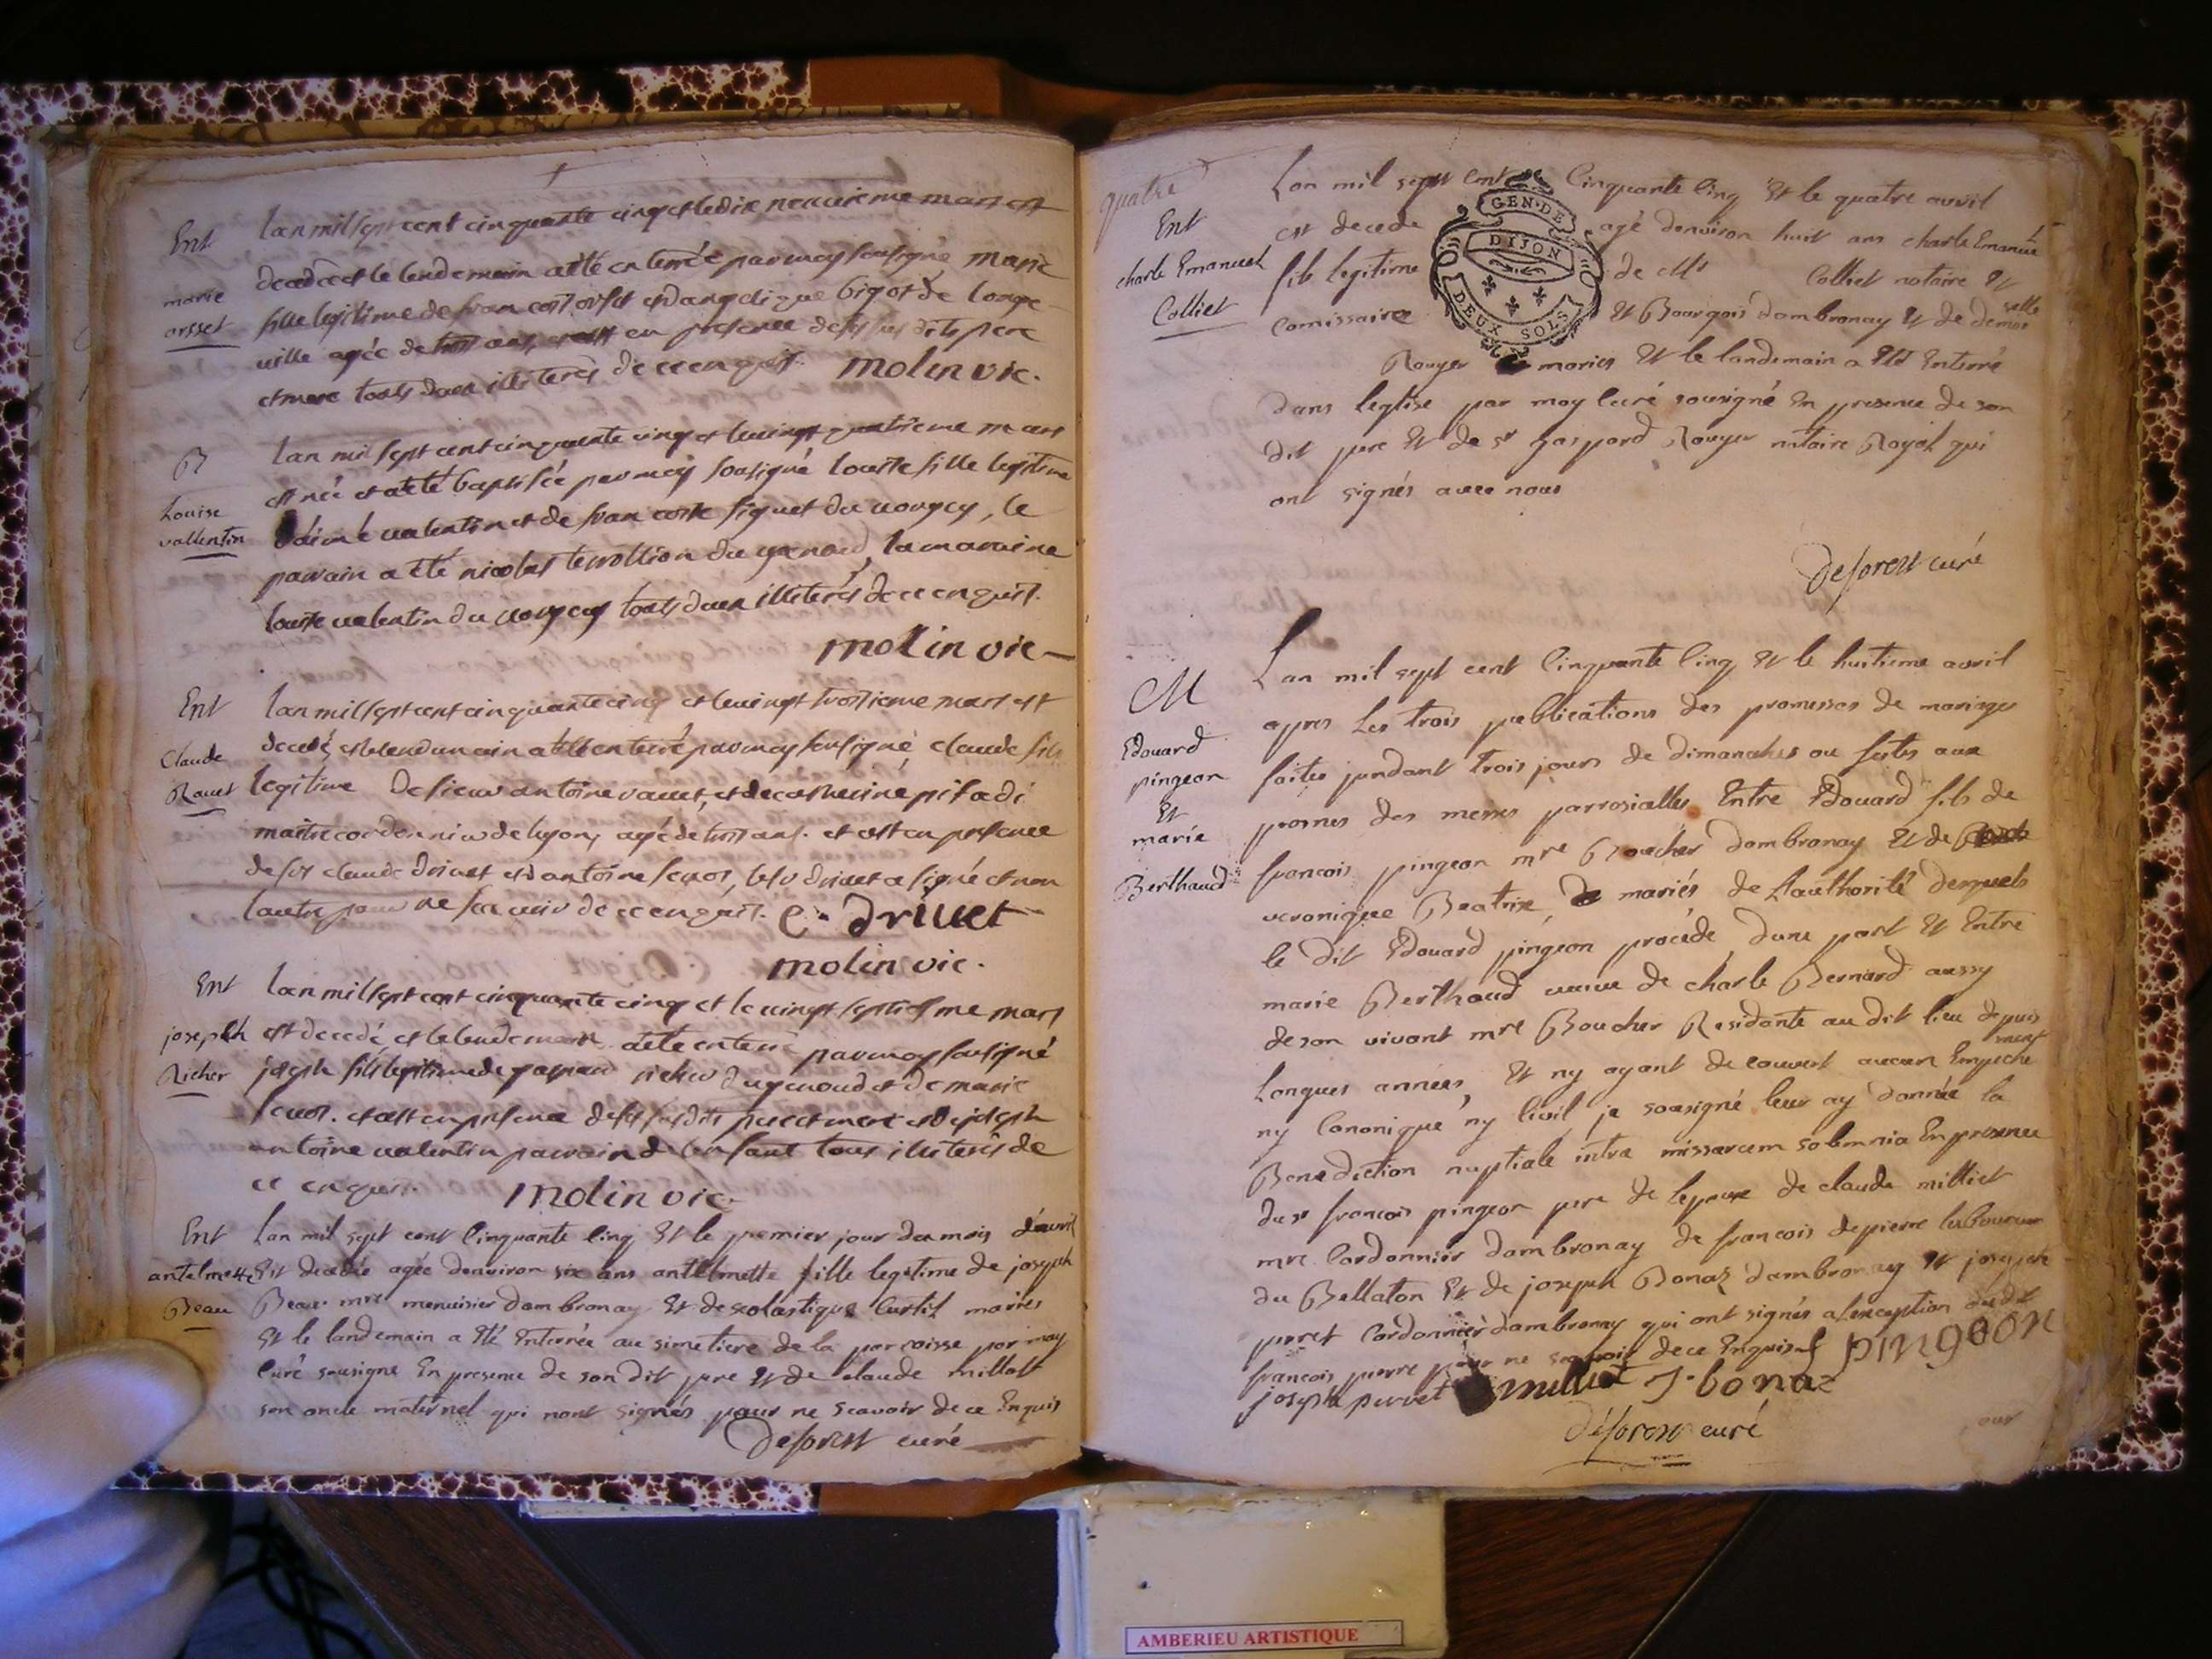 Ent
marie
orsset
lan mil sept cent cinquante cinq et le dix neuvieme mars est
decedée et le lendemain a été enterrée par moy sousigné marie
fille legitime de francois orsset et dangelique bigot de longe
ville agée de trois ans, et cest en presence de ses sus dits pere
et mere tous deux illiterés de ce enquis. molin vic.
B
Louise
vallentin
lan mil sept cent cinquante cinq et le vingt quatrieme mars
est née et a été baptisée par moy sousigné louise fille legitime
daimé valentin et de francoise siguet du vougey, le
parrain a été nicolas du genoud, la maraine
louise valentin du vougey tous deux illiterés de ce enquis.
molin vic
Ent
Claude
Ravet
lan mil sept cent cinquante cinq et le vingt troisieme mars est
decedé, et le lendemain a été enterré par moy sousigné, claude fils
legitime de sieur antoine ravet, et de catherine pisadi
maitre cordonnier de lyon, agé de trois ans. et cest en presence
de sr claude drivet et dantoine secros, le sr drivet a signé et non
lautre pour ne scavoir de ce enquis. C. drivet
molin vic.
Ent
joseph
Richer
lan mil sept cent cinquante cinq et le vingt septiesme mars
est decedé, et le lendemain a été enterré par moy sousigné
joseph fils legitime de gaspard richer du genoud et de marie
secros. et cest en presence de ses susdits pere et mere et de joseph
antoine valentin parrain de lenfant tous illiterés de
ce enquis. molin vic.
Ent
antelmette
Beau
Lan mil sept cent Cinquante Cinq Et le premier jour du mois d'avril
Est decedée agée denviron six ans antelmette fille legitime de joseph
Beau mre menuisier dambronay Et de scolastique Curtil mariés
Et le landemain a Eté Enterrée au simetiere de la parroisse par moy
Curé sousigne En presence de son dit pere Et de claude millot
son oncle maternel qui nont signés pour ne scavoir de ce Enquis
deforest curé
quatre
Ent
charle Emanuel
Colliet
Lan mil sept cent Cinquante Cinq Et le quatre avril
est decede agé denviron huit ans charle Emanuel
fils legitime de Mr Colliet notaire Et
Comissaire Et Bourgois dambronay Et de demoiselle
GEN·DE
DIJON
DEUX SOLS
Rouyer mariés Et le landemain a Eté Enterré
dans leglise par moy Curé sousigné En presence de son
dit pere Et de sr gaspard Rouyer notaire Royal qui
ont signés avec nous
deforest curé
M
Edouard
pingeon
Et
marie
Berthaud
Lan mil sept cent Cinquante Cinq Et le huitieme avril
apres Les trois publications des promesses de mariages
faites pendant trois jours de dimanches ou festes aux
prosnes des messes parrosialles Entre Edouard fils de
francois pingeon mre Boucher dambronay Et de
veronique Beatrix, mariés de Lauthorité desquels
le dit Edouard pingeon procede, dune part Et Entre
marie Berthaud veuve de charle Bernard aussy
de son vivant mre Boucher Residante au dit lieu depuis
Longues années, Et ny ayant decouvert aucun Empechement
ny Canonique ny Civil, je sousigné leur ay donnée la
Benediction nuptiale intra missarum solemnia En presence
du sr francois pingeon pere de lepoux de claude milliet
mre Cordonnier dambronay de francois depierre laboureur
du Bellaton Et de joseph Bonaz dambronay Et joseph
perret Cordonnier dambronay qui ont signés a lexception dudit
francois pierre pour ne scavoir de ce Enquis f pingeon
joseph perret milliet J. bonaz
deforest curé
AMBERIEU ARTISTIQUE